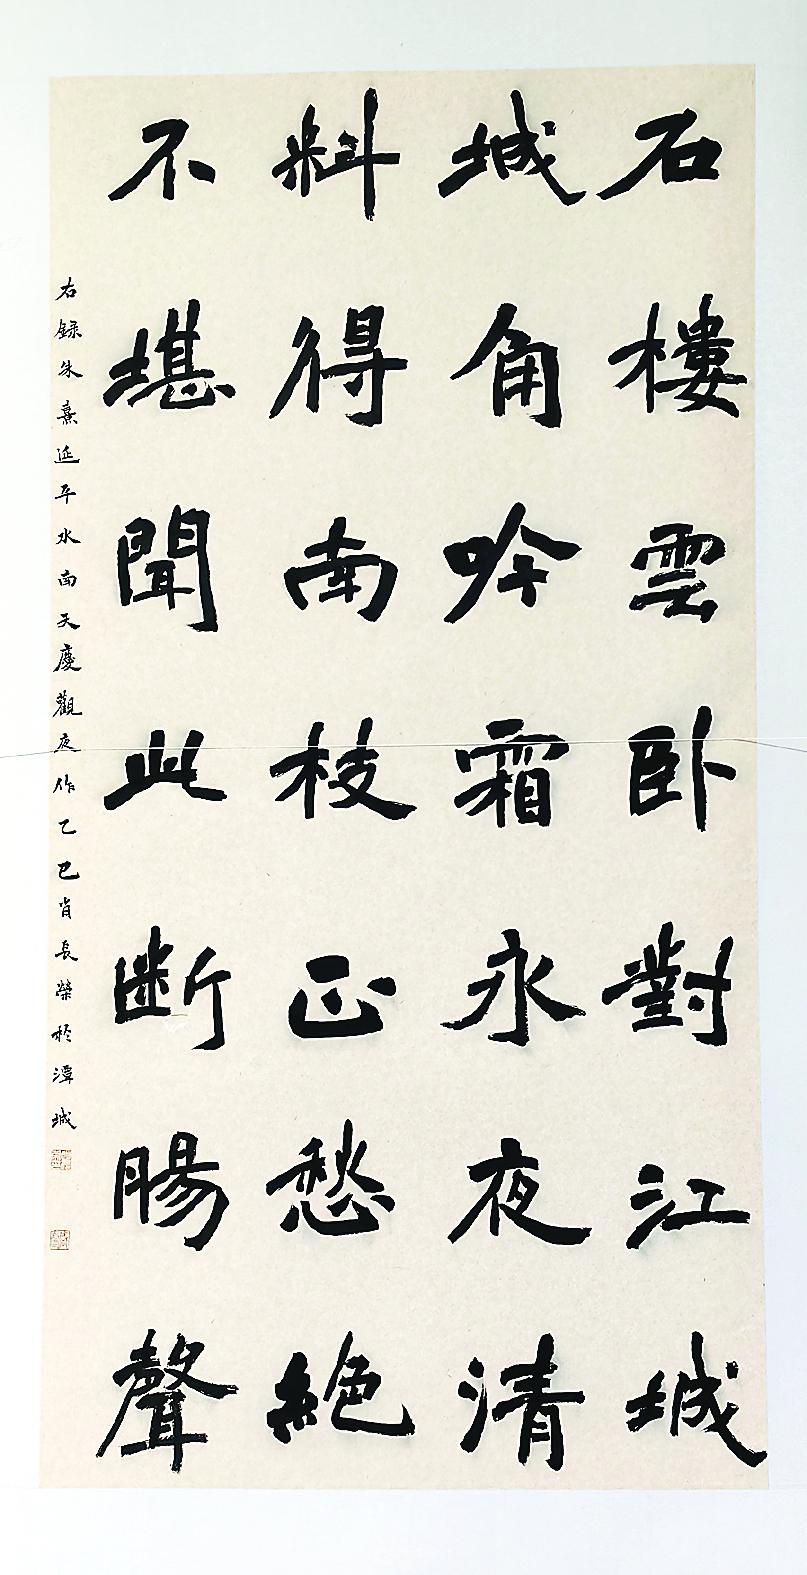 石樓雲卧對江城
城角吟霜永夜清
料得南枝正愁絶
不堪聞此断腸聲
右録朱熹延平水南天慶觀夜作乙巳肖長榮於潭城